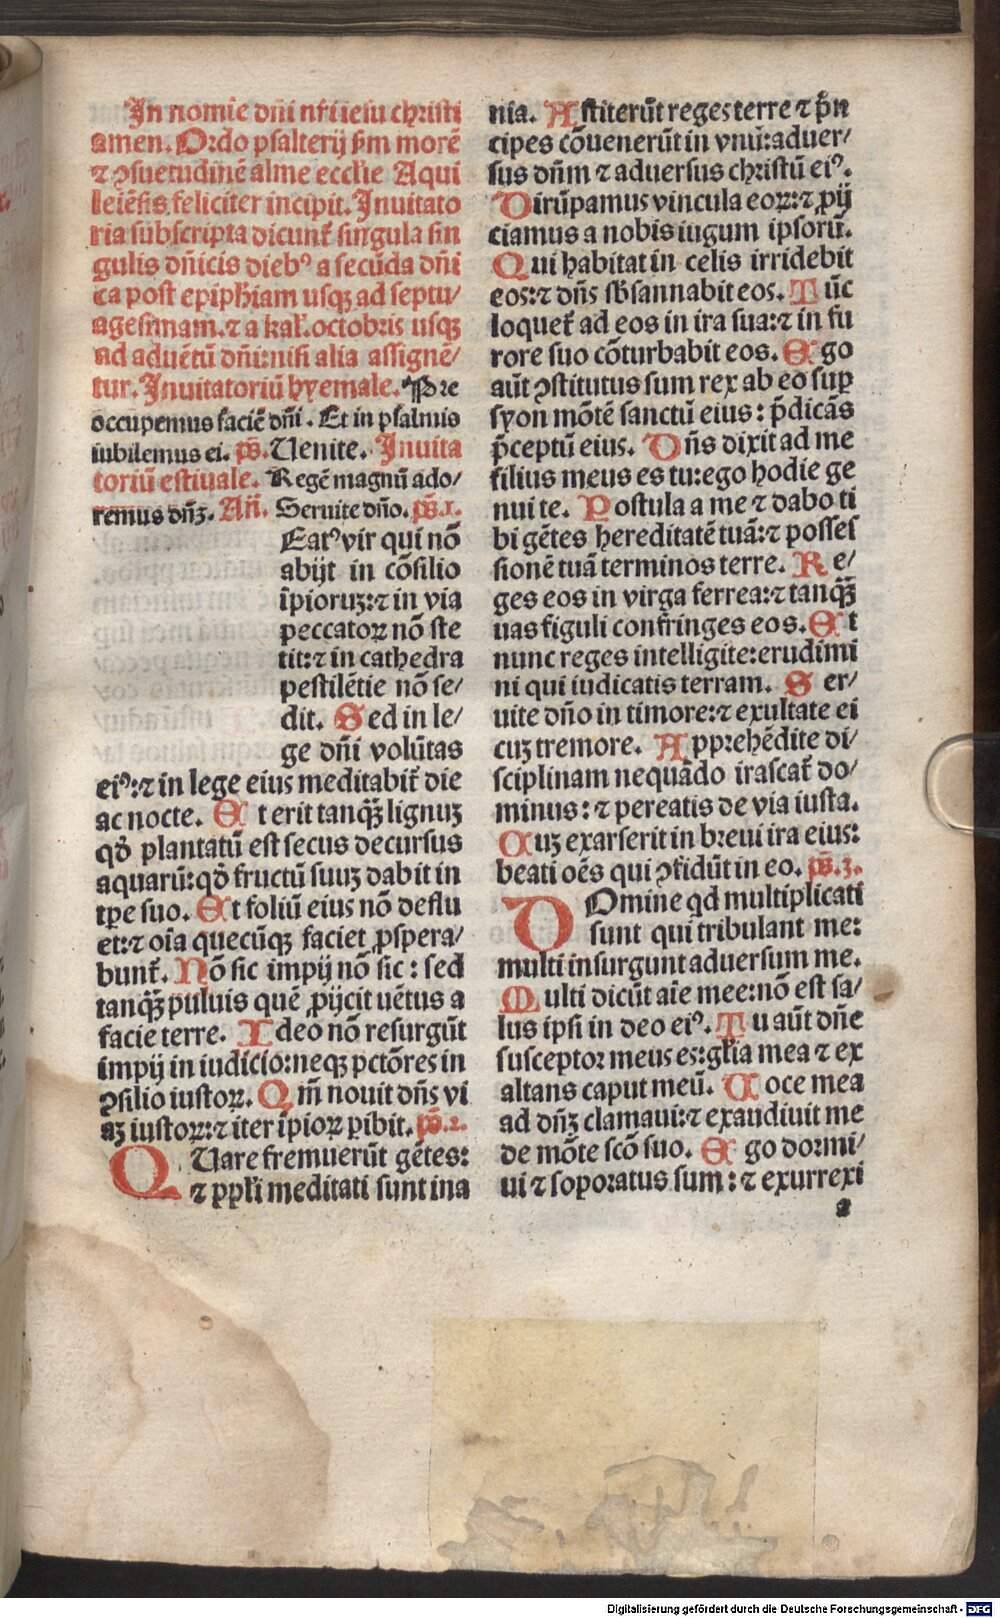 In nomīe dn̄i nr̄i iesu christi
amen. Ordo psalterij s̄m morē
⁊ ꝯsuetudinē alme ecclīe Aqui
leiēs̄is feliciter incipit. Inuitato
ria subscripta dicunt̄ singula sin
gulis dn̄icis dieb⁹ a secūda dn̄i
ca post epiph̄iam usqꝫ ad septu/
agesimam. ⁊ a kal̄. octobris usqꝫ
ad aduētū dn̄i: nisi alia assignē/
tur. Inuitatoriū hyemale. Pre
occupemus faciē dn̄i. Et in psalmis
iubilemus ei. ps̄. Uenite. Inuita
toriū estiuale. Regē magnū ado/
remus dn̄ꝫ. An̄. Seruite dn̄o. ps̄.1.
Eat⁹ vir qui nō
abijt in cōsilio
īpioruꝫ: ⁊ in via
peccatoꝝ nō ste
tit: ⁊ in cathedra
pestilētie nō se/
dit. Sed in le/
ge dn̄i volūtas
ei⁹: ⁊ in lege eius meditabit̄ die
ac nocte. Et erit tanqꝫ̄ lignuꝫ
qd̄ plantatū est secus decursus
aquarū: qd̄ fructū suuꝫ dabit in
tpe suo. Et foliū eius nō deflu
et: ⁊ oīa quecūqꝫ faciet ꝓspera/
bunt̄. Nō sic impij nō sic: sed
tanqꝫ̄ puluis quē ꝓijcit uētus a
facie terre. Ideo nō resurgūt
impij in iudicio: neqꝫ pctōres in
ꝯsilio iustoꝝ. Qm̄ nouit dn̄s vi
aꝫ iustoꝝ: ⁊ iter īpioꝝ ꝑibit. ps̄.2.
QUare fremuerūt gētes:
⁊ ppl̄i meditati sunt ina
nia. Astiterūt reges terre ⁊ p̄n
cipes cōuenerūt in vnū: aduer/
sus dn̄m ⁊ aduersus christū ei⁹.
Dirūpamus vincula eoꝝ: ⁊ ꝓij
ciamus a nobis iugum ipsorū.
Qui habitat in celis irridebit
eos: ⁊ dn̄s sb̄sannabit eos. Tūc
loquet̄ ad eos in ira sua: ⁊ in fu
rore suo cōturbabit eos. Ego
aūt ꝯstitutus sum rex ab eo suꝑ
syon mōtē sanctū eius: p̄dicās
p̄ceptū eius. Dn̄s dixit ad me
filius meus es tu: ego hodie ge
nui te. Postula a me ⁊ dabo ti
bi gētes hereditatē tuā: ⁊ posses
sionē tuā terminos terre. Re/
ges eos in virga ferrea: ⁊ tanqꝫ̄
uas figuli confringes eos. Et
nunc reges intelligite: erudimi
ni qui iudicatis terram. Ser/
uite dn̄o in timore: ⁊ exultate ei
cuꝫ tremore. Apprehēdite di/
sciplinam nequādo irascat̄ do/
minus: ⁊ pereatis de via iusta.
Cuꝫ exarserit in breui ira eius:
beati oēs qui ꝯfidūt in eo. ps̄.3.
DOmine qd multiplicati
sunt qui tribulant me:
multi insurgunt aduersum me.
Multi dicūt aīe mee: nō est sa/
lus ipsi in deo ei⁹. Tu aūt dn̄e
susceptor meus es: gl̄ia mea ⁊ ex
altans caput meū. Uoce mea
ad dn̄ꝫ clamaui: ⁊ exaudiuit me
de mōte scō suo. Ego dormi/
ui ⁊ soporatus sum: ⁊ exurrexi
a
Digitalisierung gefördert durch die Deutsche Forschungsgemeinschaft - DFG